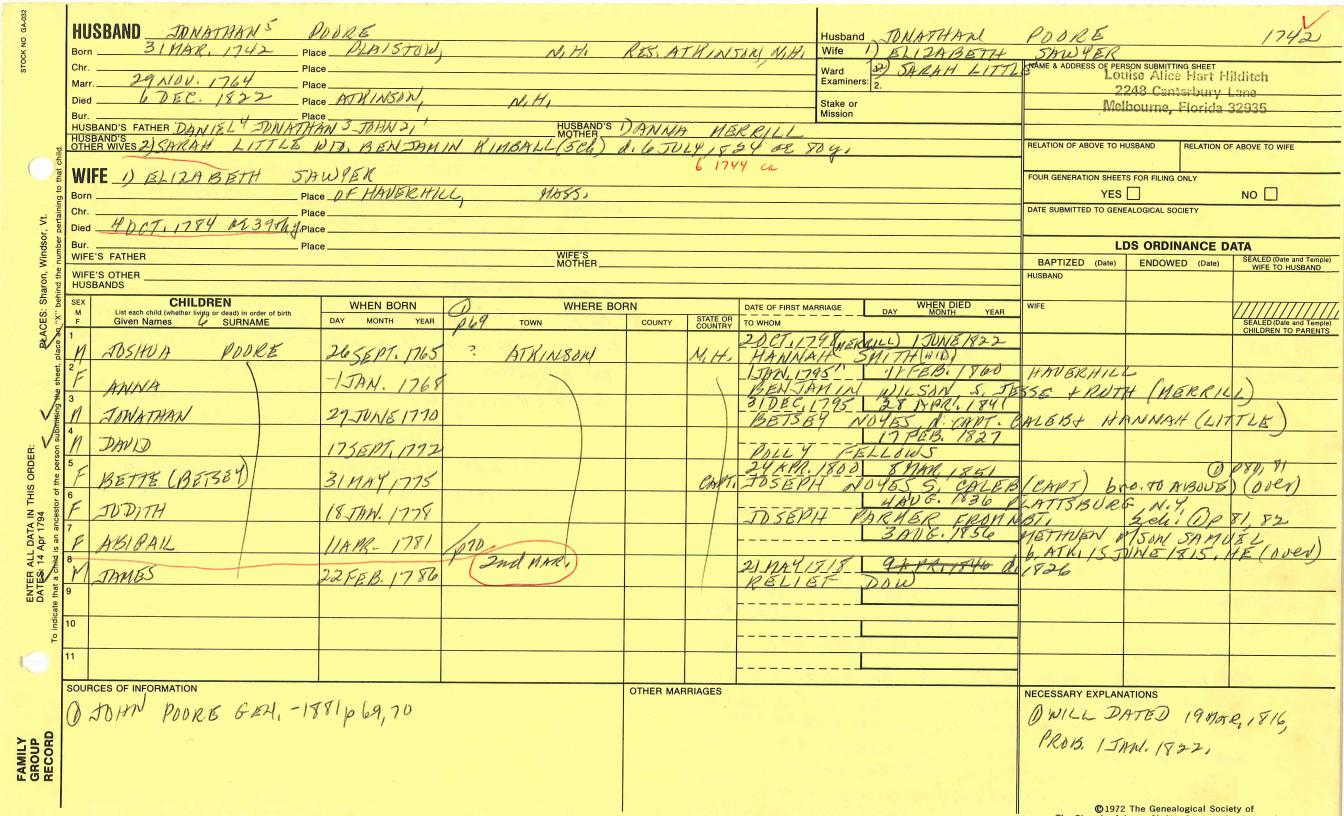 STOCK NO. GA-032
HUSBAND JONATHAN 5 POORE
Born 31 MAR. 1742 Place PLAISTOW, N.H. RES. ATKINSON, N.H.
Chr. Place
Marr. 29 NOV. 1764 Place
Died 6 DEC. 1822 Place ATKINSON, N.H.
Bur. Place
HUSBAND'S FATHER DANIEL 4 JONATHAN 3 JOHN 2, 1 HUSBAND'S MOTHER ANNA MERRILL
HUSBAND'S OTHER WIVES 2) SARAH LITTLE WID. BENJAMIN KIMBALL (5ch) d. 6 JULY, 1824 ae 80 y.
6 1744 ca
WIFE 1) ELIZABETH SAWYER
Born Place OF HAVERHILL, MASS.
Chr. Place
Died 4 OCT. 1784 ae 39th y. Place
Bur. Place
WIFE'S FATHER WIFE'S MOTHER
WIFE'S OTHER HUSBANDS
Husband JONATHAN POORE 1742
Wife 1) ELIZABETH SAWYER
Ward Examiners: 2) SARAH LITTLE
2.
Stake or Mission
NAME & ADDRESS OF PERSON SUBMITTING SHEET
Louise Alice Hart Hilditch
2248 Canterbury Lane
Melbourne, Florida 32935
RELATION OF ABOVE TO HUSBAND RELATION OF ABOVE TO WIFE
FOUR GENERATION SHEETS FOR FILING ONLY
YES NO
DATE SUBMITTED TO GENEALOGICAL SOCIETY
LDS ORDINANCE DATA
BAPTIZED (Date) ENDOWED (Date) SEALED (Date and Temple) WIFE TO HUSBAND
HUSBAND
WIFE
SEALED (Date and Temple) CHILDREN TO PARENTS
SEX M F CHILDREN WHEN BORN WHERE BORN DATE OF FIRST MARRIAGE WHEN DIED
List each child (whether living or dead) in order of birth
Given Names SURNAME DAY MONTH YEAR p69 TOWN COUNTY STATE OR COUNTRY TO WHOM DAY MONTH YEAR
1 2 OCT. 1798 (MERRILL) 1 JUNE 1822
M JOSHUA POORE 26 SEPT. 1765 ? ATKINSON N.H. HANNAH SMITH (WID)
2 1 JAN. 1795 11 FEB. 1860 HAVERHILL
F ANNA 1 JAN. 1768 BENJAMIN WILSON S. JESSE + RUTH (MERRILL)
3 31 DEC, 1795 28 APR. 1841
M JONATHAN 27 JUNE 1770 BETSEY NOYES, d. CAPT. CALEB + HANNAH (LITTLE)
4 17 FEB. 1827
M DAVID 17 SEPT. 1772 POLLY FELLOWS
5 24 APR. 1800 8 MAR. 1851 1 p 80, 81
F BETTE (BETSEY) 31 MAY 1775 CAPT. JOSEPH NOYES S. CALEB (CAPT) bro. TO ABOVE) (over)
6 4 AUG. 1836 PLATTSBURG, N.Y.
F JUDITH 18 JAN. 1778 JOSEPH PARKER FROM 3 ch: 1 p 81, 82
7 3 AUG. 1856 METHUEN M SON SAMUEL
F ABIGAIL 11 APR. 1781 p70 b. ATK. 15 JUNE 1815, HE (over)
8 2nd MAR. 21 MAY 1818 9 APR. 1846 d. 1826
M JAMES 22 FEB. 1786 RELIEF DOW
9
10
11
SOURCES OF INFORMATION
1 JOHN POORE GEN. - 1881 p 69, 70
OTHER MARRIAGES
NECESSARY EXPLANATIONS
1 WILL DATED 19 MAR, 1816,
PROB. 1 JAN. 1822.
©1972 The Genealogical Society of
ENTER ALL DATA IN THIS ORDER:
DATES: 14 Apr 1794 PLACES: Sharon, Windsor, Vt.
To indicate that a child is an ancestor of the person submitting the sheet, place an "X" behind the number pertaining to that child.
FAMILY GROUP RECORD